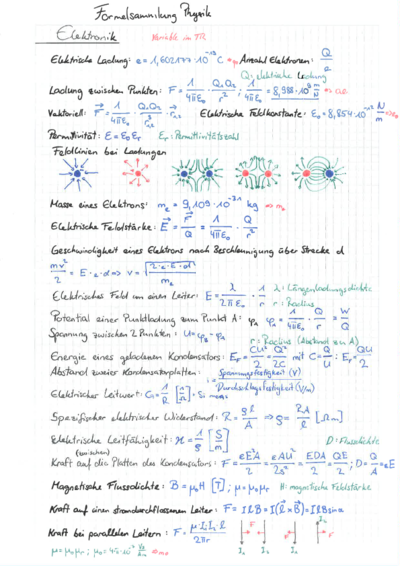 Formelsammlung Physik
Elektronik Variable im TR
Elektrische Ladung: e = 1,602177·10⁻¹⁹ C Anzahl Elektronen: Q/e
Q: elektrische Ladung
Ladung zwischen Punkten: F = 1/(4πε₀) · Q₁Q₂/r² ; 1/(4πε₀) = 8,988·10⁹
Vektoriell: F = 1/(4πε₀) · Q₁Q₂/r² · r Elektrische Feldkonstante: ε₀ = 8,854·10⁻¹²
Permittivität: ε = ε₀εᵣ εᵣ: Permittivitätszahl
Feldlinien bei Ladungen
Masse eines Elektrons: mₑ = 9,109·10⁻³¹ kg
Elektrische Feldstärke: E = F/Q = 1/(4πε₀) · Q/r²
Geschwindigkeit eines Elektrons nach Beschleunigung über Strecke d
mv²/2 = E·e·d ⇒ v = √(2·e·E·d)/mₑ
Elektrisches Feld um einen Leiter: E = λ/(2πε₀) · 1/r λ: Längenladungsdichte
r: Radius
Potential einer Punktladung zum Punkt A: φA φA = 1/(4πε₀) · Q/r = W/Q
Spannung zwischen 2 Punkten: U = φB - φA
r: Radius (Abstand von A)
Energie eines geladenen Kondensators: EF = CU²/2 = Q²/2C mit C = Q/U : EF = QU/2
Abstand zweier Kondensatorplatten: = Spannungsfestigkeit (V)/Durchschlagsfestigkeit (V/m)
Elektrischer Leitwert: G = 1/R
Spezifischer elektrischer Widerstand: R = ρl/A ⇒ ρ = RA/l [Ωm]
Elektrische Leitfähigkeit: ϰ = 1/ρ [S/m] D: Flussdichte
(zwischen)
Kraft auf die Platten des Kondensators: F = εE²A/2 = εAU²/2s² = EDA/2 = QE/2 ; D = Q/A = εE
Magnetische Flussdichte: B = μ₀H [T] ; μ = μ₀μᵣ H: magnetische Feldstärke
Kraft auf einen stromdurchflossenen Leiter: F = IlB = I(l × B) = IlB sin α
Kraft bei parallelen Leitern: F = μI₁I₂l/2πr
I₁ I₂ I₁ I₂
μ = μ₀μᵣ ; μ₀ = 4π·10⁻⁷ Vs/Am